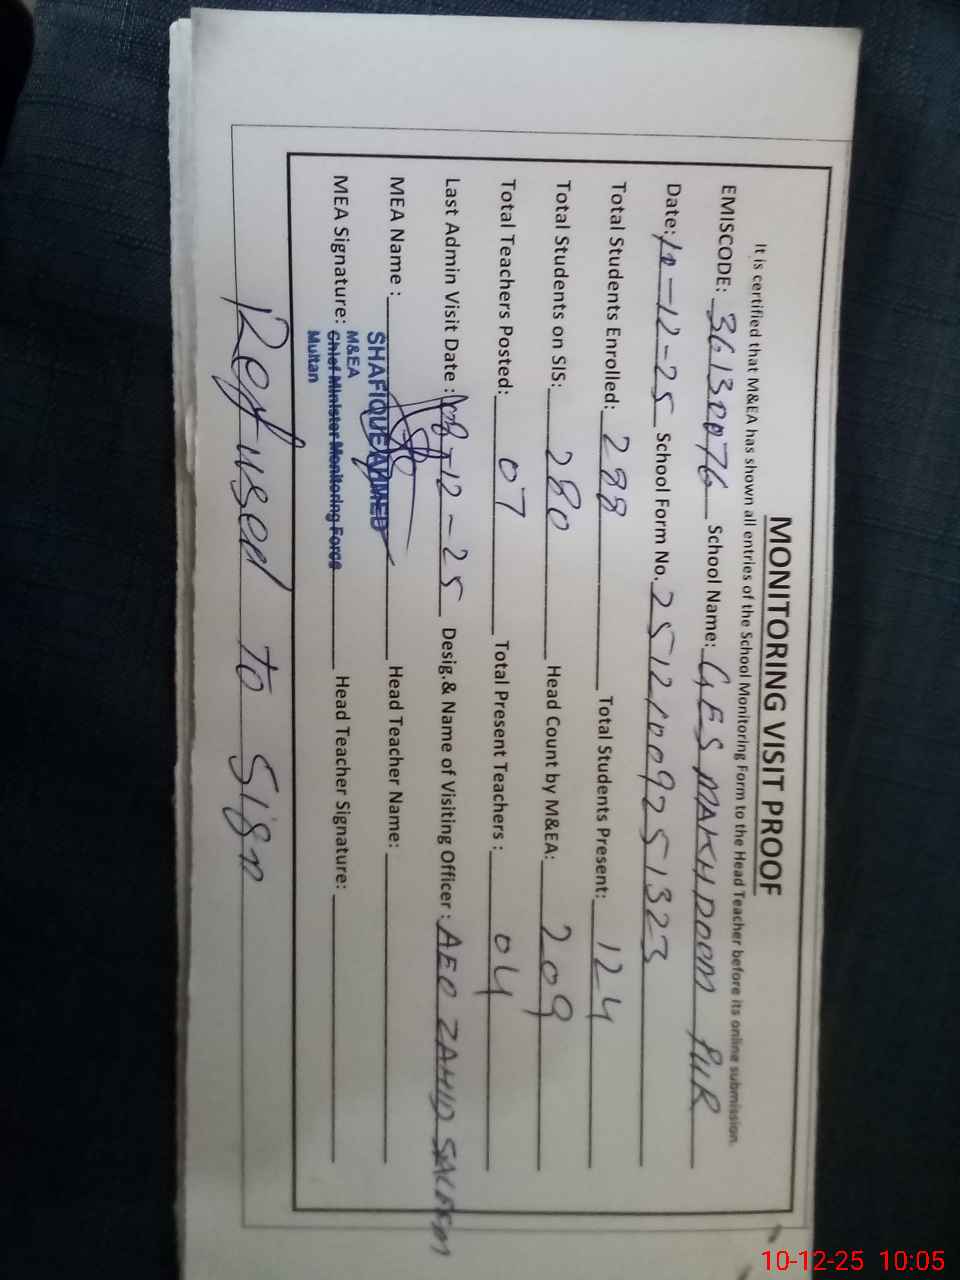 MONITORING VISIT PROOF
It is certified that M&EA has shown all entries of the School Monitoring Form to the Head Teacher before its online submission.
EMISCODE: 36130076 School Name: GES MAKHDOOM PUR
Date: 10-12-25 School Form No. 2512100925 1323
Total Students Enrolled: 288 Total Students Present: 124
Total Students on SIS: 280 Head Count by M&EA: 209
Total Teachers Posted: 07 Total Present Teachers : 04
Last Admin Visit Date : 08-12-25 Desig.& Name of Visiting Officer : AEO ZAHID SALEEM
MEA Name : SHAFIQUE AHMED Head Teacher Name:
M&EA
MEA Signature: Chief Minister Monitoring Force Head Teacher Signature:
Multan
Refused to Sign
10-12-25 10:05